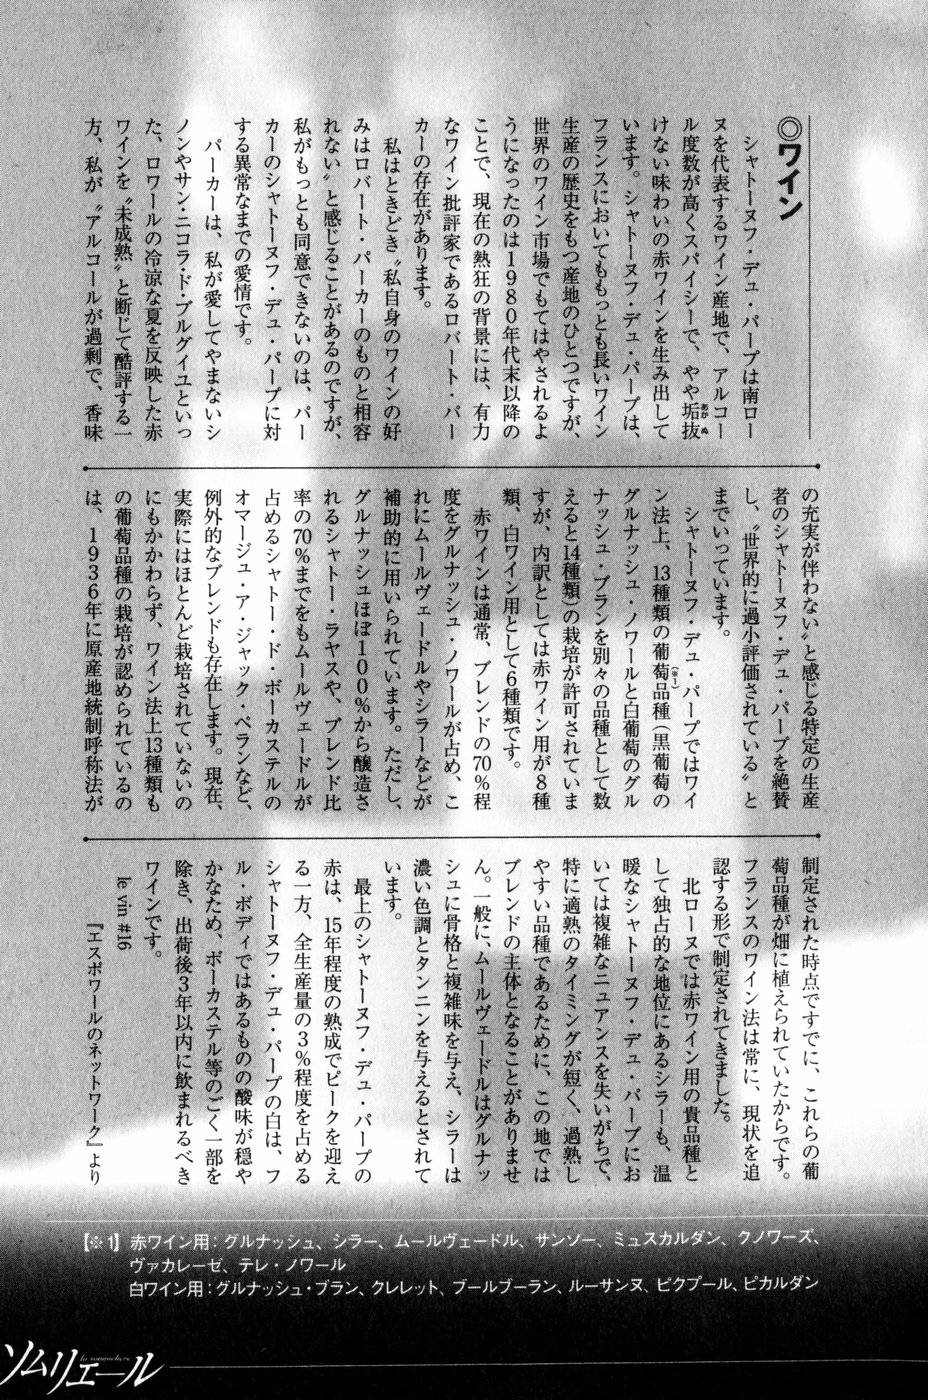 ◎ワイン
　シャトーヌフ・デュ・パープは南ロー
ヌを代表するワイン産地で、アルコー
ル度数が高くスパイシーで、やや垢抜
けない味わいの赤ワインを生み出して
います。シャトーヌフ・デュ・パープは、
フランスにおいてももっとも長いワイン
生産の歴史をもつ産地のひとつですが、
世界のワイン市場でもてはやされるよ
うになったのは1980年代末以降の
ことで、現在の熱狂の背景には、有力
なワイン批評家であるロバート・パー
カーの存在があります。
　私はときどき〝私自身のワインの好
みはロバート・パーカーのものと相容
れない〟と感じることがあるのですが、
私がもっとも同意できないのは、パー
カーのシャトーヌフ・デュ・パープに対
する異常なまでの愛情です。
　パーカーは、私が愛してやまないシ
ノンやサン・ニコラ・ド・ブルグイユといっ
た、ロワールの冷涼な夏を反映した赤
ワインを〝未成熟〟と断じて酷評する一
方、私が〝アルコールが過剰で、香味
の充実が伴わない〟と感じる特定の生産
者のシャトーヌフ・デュ・パープを絶賛
し、〝世界的に過小評価されている〟と
までいっています。
　シャトーヌフ・デュ・パープではワイ
ン法上、13種類の葡萄品種（※1）（黒葡萄の
グルナッシュ・ノワールと白葡萄のグル
ナッシュ・ブランを別々の品種として数
えると14種類）の栽培が許可されていま
すが、内訳としては赤ワイン用が8種
類、白ワイン用として6種類です。
　赤ワインは通常、ブレンドの70％程
度をグルナッシュ・ノワールが占め、こ
れにムールヴェードルやシラーなどが
補助的に用いられています。ただし、
グルナッシュほぼ100％から醸造さ
れるシャトー・ラヤスや、ブレンド比
率の70％までをもムールヴェードルが
占めるシャトー・ド・ボーカステルの
オマージュ・ア・ジャック・ペランなど、
例外的なブレンドも存在します。現在、
実際にはほとんど栽培されていないの
にもかかわらず、ワイン法上13種類も
の葡萄品種の栽培が認められているの
は、1936年に原産地統制呼称法が
制定された時点ですでに、これらの葡
萄品種が畑に植えられていたからです。
フランスのワイン法は常に、現状を追
認する形で制定されてきました。
　北ローヌでは赤ワイン用の貴品種と
して独占的な地位にあるシラーも、温
暖なシャトーヌフ・デュ・パープにお
いては複雑なニュアンスを失いがちで、
特に適熟のタイミングが短く、過熟し
やすい品種であるために、この地では
ブレンドの主体となることがありませ
ん。一般に、ムールヴェードルはグルナッ
シュに骨格と複雑味を与え、シラーは
濃い色調とタンニンを与えるとされて
います。
　最上のシャトーヌフ・デュ・パープの
赤は、15年程度の熟成でピークを迎え
る一方、全生産量の3％程度を占める
シャトーヌフ・デュ・パープの白は、フ
ル・ボディではあるものの酸味が穏や
かなため、ボーカステル等のごく一部を
除き、出荷後3年以内に飲まれるべき
ワインです。
le vin #16
『エスポワールのネットワーク』より
【※1】赤ワイン用：グルナッシュ、シラー、ムールヴェードル、サンソー、ミュスカルダン、クノワーズ、
ヴァカレーゼ、テレ・ノワール
白ワイン用：グルナッシュ・ブラン、クレレット、ブールブーラン、ルーサンヌ、ピクプール、ピカルダン
ソムリエール